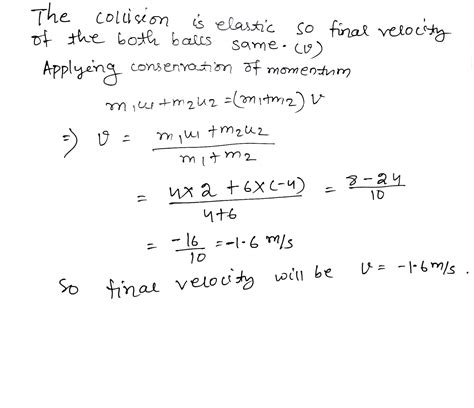 The collision is elastic so final velocity
of the both balls same. (v)
Applyeing conservation of momentum
m1u1 + m2u2 = (m1+m2) v
⇒ v = m1u1 + m2u2 / m1 + m2
= 4×2 + 6×(-4) / 4+6 = 8-24 / 10
= -16 / 10 = -1.6 m/s
So final velocity will be v = -1.6 m/s.